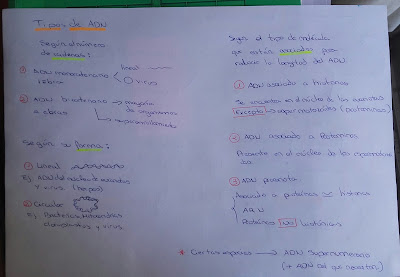 Tipos de ADN
Según el número
de cadenas:
① ADN monocatenario
lineal
virus
② ADN bicatenario
mayoría
de organismos
superenrollamiento
Según su forma:
① Lineal
Ej. ADN del núcleo de eucariotas
y virus (herpes)
② Circular
Ej. Bacterias, mitocondrias
cloroplastos y virus
Según el tipo de molécula
que están asociadas para
reducir la longitud del ADN
① ADN asociado a histonas
Se encuentra en el núcleo de las eucariotas
Excepto espermatozoides (protaminas)
② ADN asociado a Protaminas
Presente en el núcleo de los espermatozoi-
des.
③ ADN procariota
Asociado a proteínas ≃ histonas
ARN
Proteínas NO histónicas
* Ciertas especies → ADN Supernumerario
(+ ADN del que necesitan)